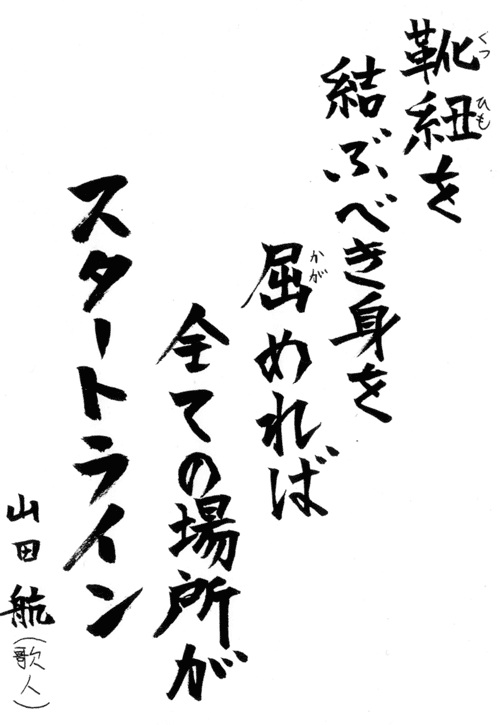 靴紐を
くつひも
結ぶべき身を
屈めれば
かが
全ての場所が
スタートライン
山田航(歌人)